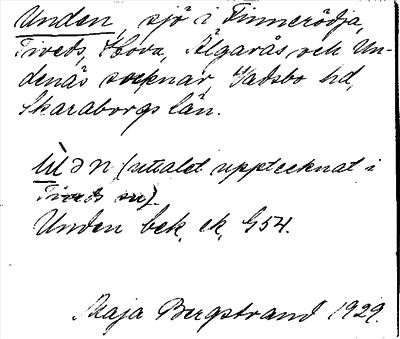 Unden, sjö i Finnerödja,
Tiveds, Hova, Älgarås och Un-
denäs socknar, Vadsbo hd,
Skaraborgs län.
ùdǝn (uttalet upptecknat i
Tiveds sn).
Unden bek. ek. G54.
Maja Bergstrand 1929.